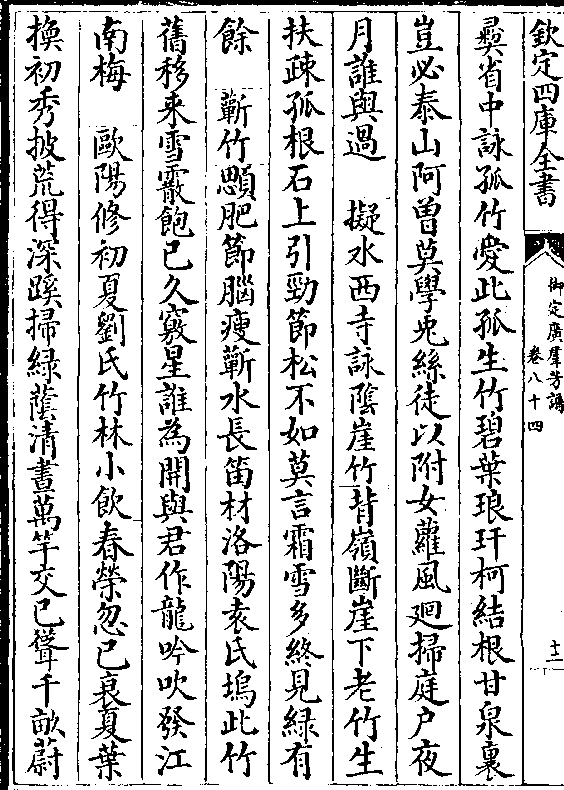 欽定四庫全書
御定廣羣芳譜
卷八十四
十二
彛省中詠孤竹愛此孤生竹碧葉琅玕柯結根甘泉裏
豈必泰山阿曽莫學兎絲徒以附女蘿風廻掃庭户夜
月誰與過　擬水西寺詠隂崖竹背嶺斷崖下老竹生
扶疎孤根石上引勁節松不如莫言霜雪多終見緑有
餘　蘄竹顋肥節腦瘦蘄水長笛材洛陽袁氏塢此竹
舊移來雪霰飽已久竅星誰為開與君作龍吟吹發江
南梅　歐陽修初夏劉氏竹林小飲春榮忽已衰夏葉
換初秀披荒得深蹊掃緑蔭清晝萬竿交已聳千畝蔚